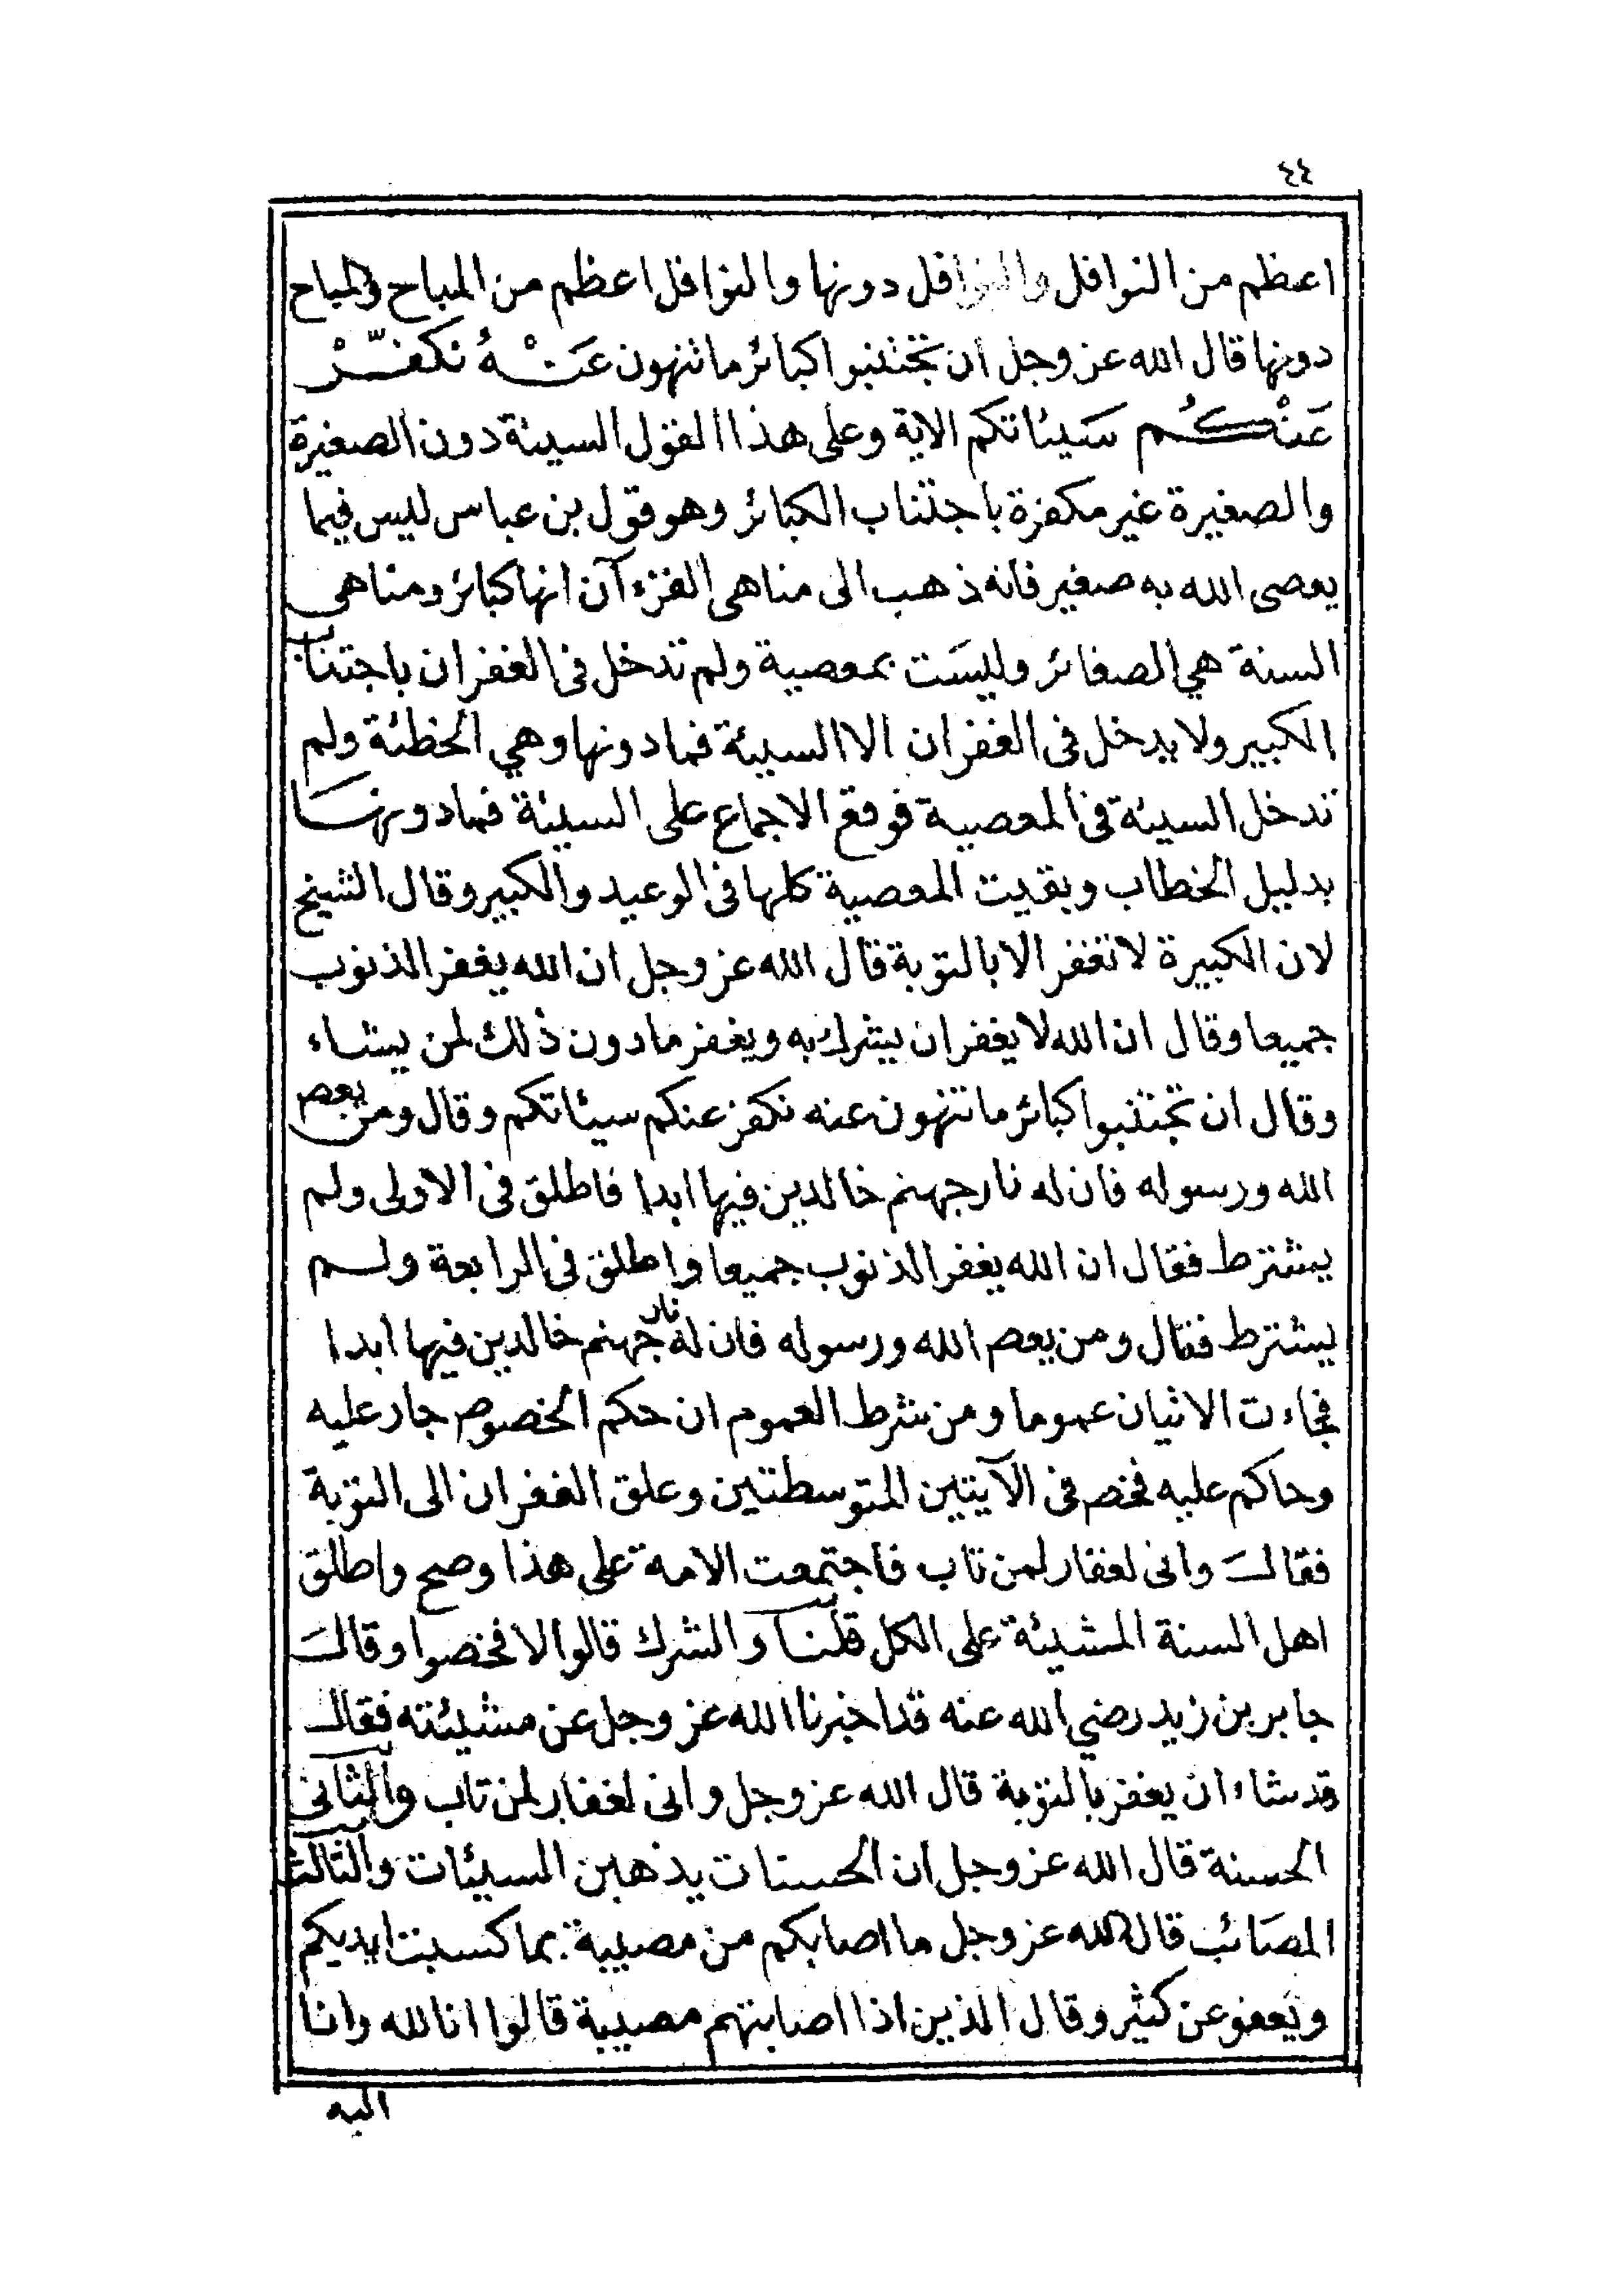 ٤٤
اعظم من النوافل والنوافل دونها والنوافل اعظم من المباح والمباح
دونها قال الله عز وجل ان تجتنبوا كبائر ما تنهون عَنْهُ نكفّرْ
عَنْكُم سَيئاتكم الاية وعلى هذا القول السيئة دون الصغيرة
والصغيرة غير مكفرة باجتناب الكبائر وهو قول بن عباس ليس فيما
يعصى الله به صغير فانه ذهب الى مناهى القرءآن انها كبائر ومناهى
السنة هي الصغائر وليسَت بمعصية ولم تدخل فى الغفران باجتناب
الكبير ولا يدخل فى الغفران الا السيئة فما دونها وهي الخطئة ولم
تدخل السيئة فى المعصية فوقع الاجماع على السيئة فما دونهَا
بدليل الخطاب وبقيت المعصية كلها فى الوعيد والكبير وقال الشيخ
لان الكبيرة لا تغفر الا بالتوبة قال الله عز وجل ان الله يغفر الذنوب
جميعا وقال ان الله لا يغفر ان يشرك به ويغفر ما دون ذلك لمن يشاء
وقال ان تجتنبوا كبائر ما تنهون عنه نكفر عنكم سيئاتكم وقال ومن يعص
الله ورسوله فان له نار جهنم خالدين فيها ابدا فاطلق فى الاولى ولم
يشترط فقال ان الله يغفر الذنوب جميعا واطلق فى الرابعة ولم
يشترط فقال ومن يعص الله ورسوله فان له نار جهنم خالدين فيها ابدا
فجاءت الاثيان عموما ومن شرط العموم ان حكم الخصوص جار عليه
وحاكم عليه فخص فى الآيتين المتوسطتين وعلق الغفران الى التوبة
فقالَ وانى لغفار لمن تاب فاجتمعت الامة على هذا وصح واطلق
اهل السنة المشيئة على الكل قلنا والشرك قالوا لا فخصوا وقالَ
جابر بن زيد رضي الله عنه قد اخبرنا الله عز وجل عن مشيئته فقال
قد شاء ان يغفر بالتوبة قال الله عز وجل وانى لغفار لمن تاب والثانى
الحسنة قال الله عز وجل ان الحسنات يذهبن السيئات والثالث
المصَائب قال الله عز وجل ما اصابكم من مصيبة بما كسبت ايديكم
ويعفو عن كثير وقال الذين اذا اصابتهم مصيبة قالوا انا لله وانا
اليه